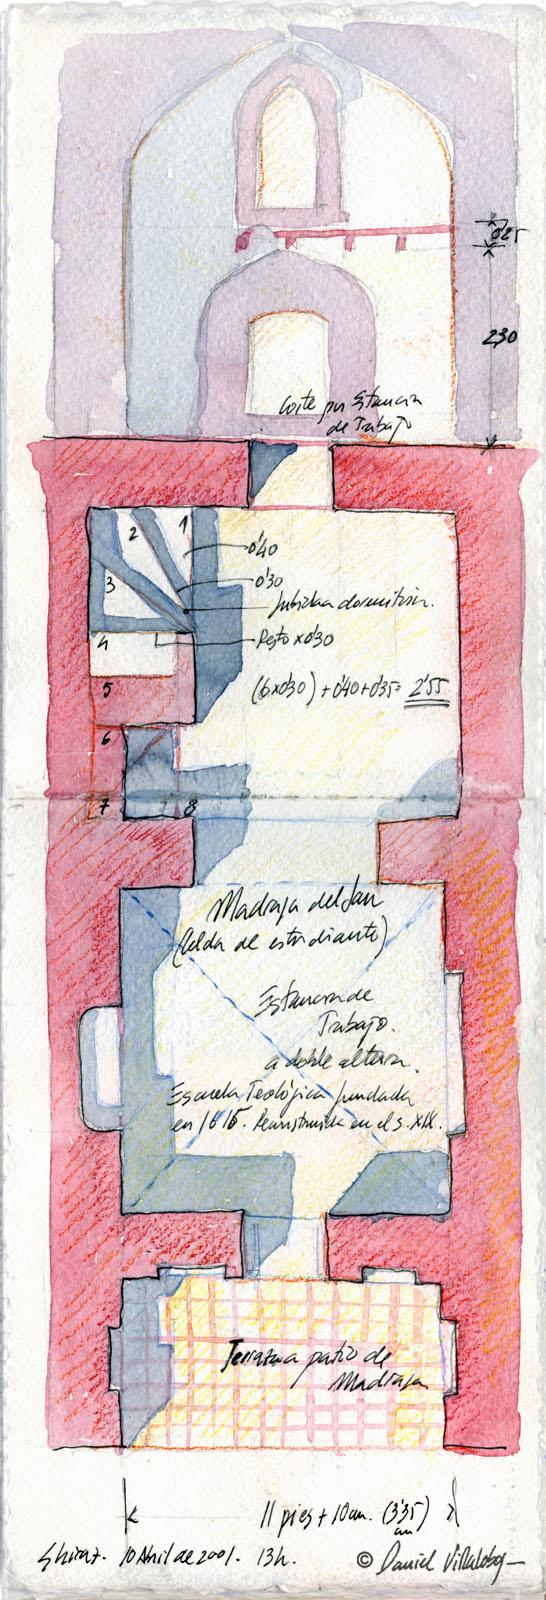 0'25
2,30
Corte por Estancia
de Trabajo
1
2
0'40
3
0'30
Subida a dormitorio.
4
Resto x 0'30
5
(6x0'30) + 0'40 + 0'35 = 2'55
6
7
8
Madrasa del Jan
(Celda de estudiante)
Estancia de
Trabajo.
a doble altura.
Escuela Teológica fundada
en 1615. Reconstruida en el s. XIX.
Terraza a patio de
Madrasa
11 pies + 10 cm. (3'35)
Shiraz. 10 Abril de 2001. 13h.
© Daniel Villalobos